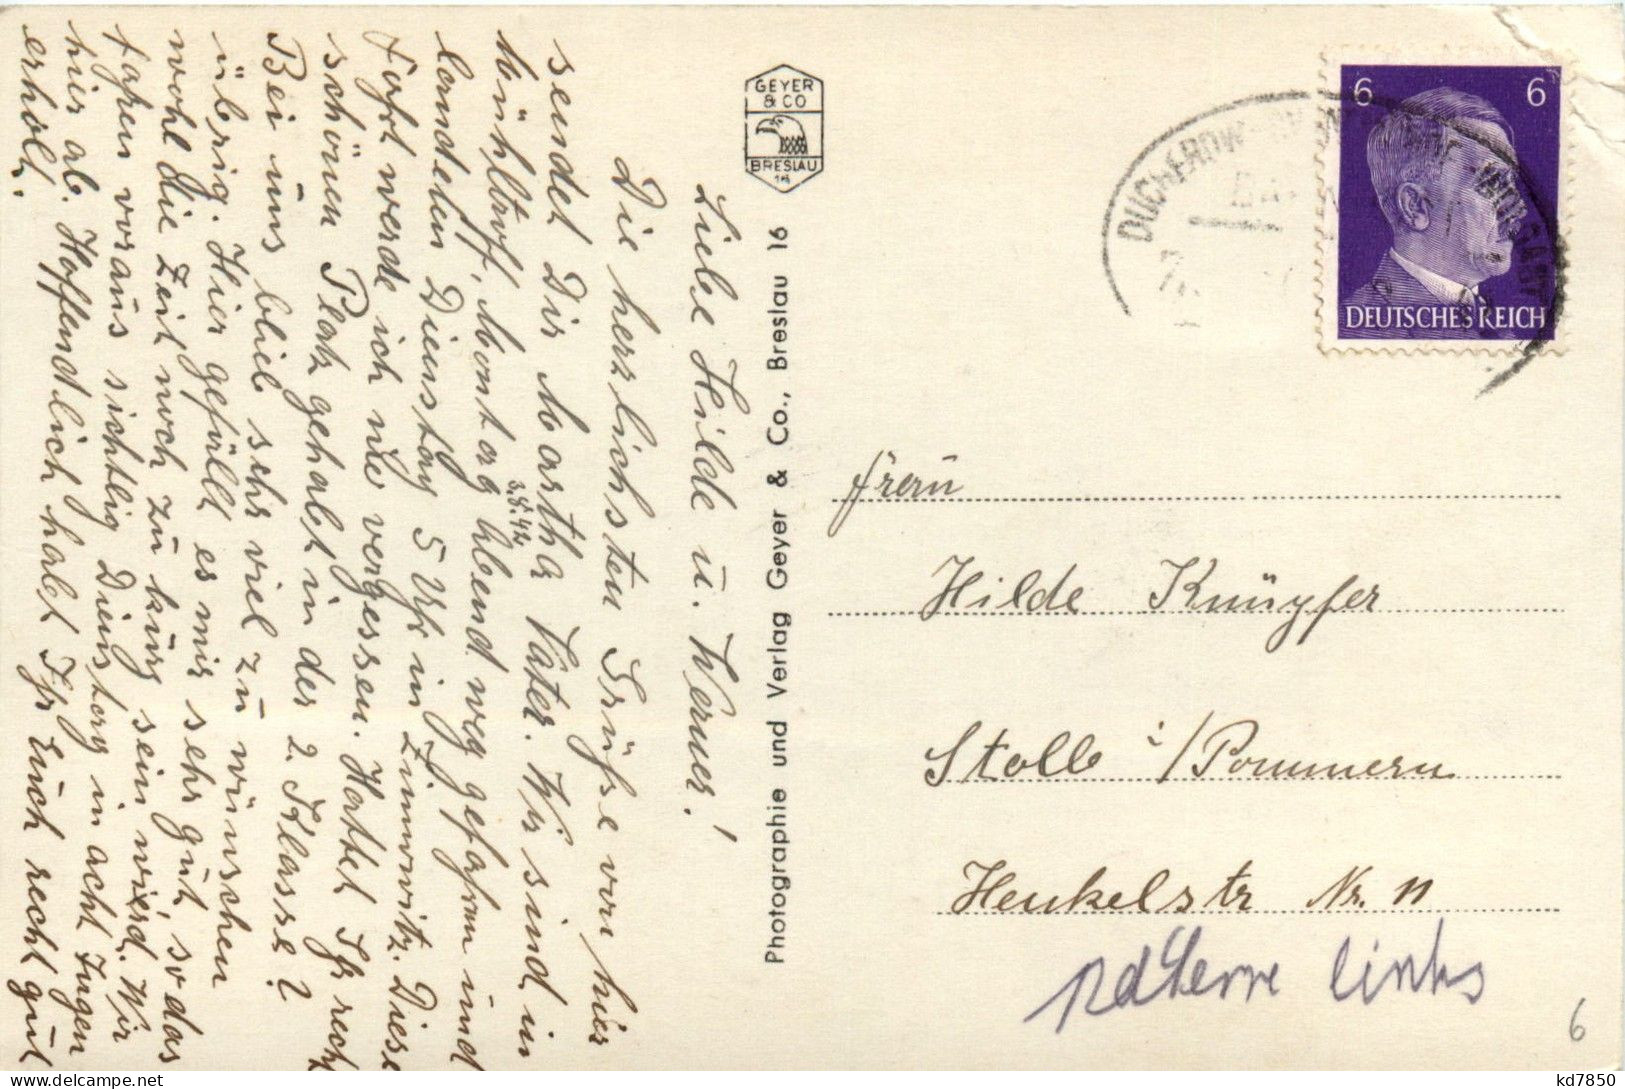 Liebe Hilde u. Werner!
Die herzlichsten Grüße von hier
sendet Dir Martha Vater. Wir sind in
Montag Abend weg gefahren und
3.8.42
landeten Dienstag 5 Uhr in Zinnowitz. Diese
Fahrt werde ich nie vergessen. Hattet Ihr recht
schönen Platz gehabt in der 2. Klasse?
Bei uns blieb sehr viel zu wünschen
übrig. Hier gefällt es mir sehr gut sodas
wohl die Zeit noch zu kurz sein wird. Wir
fahren voraus sichtlig Dienstag in acht Tagen
hier ab. Hoffendlich habt Ihr Euch recht gut
erholt.
GEYER
& CO
BRESLAU
16
Photographie und Verlag Geyer & Co., Breslau 16
6 6
DEUTSCHES REICH
DUCHEROW
Frau
Hilde Knüpfer
Stolp i/Pommern
Henkelstr Nr. 11
links
6
kd7850